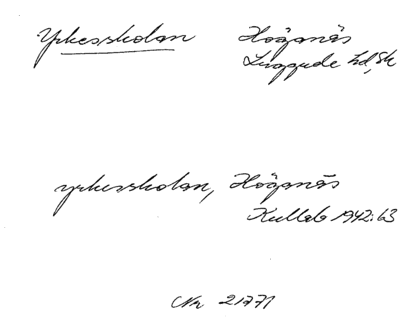 Yrkesskolan Höganäs
Luggude hd, Sk
yrkesskolan, Höganäs
Kullab 1942:63
Nr 21771